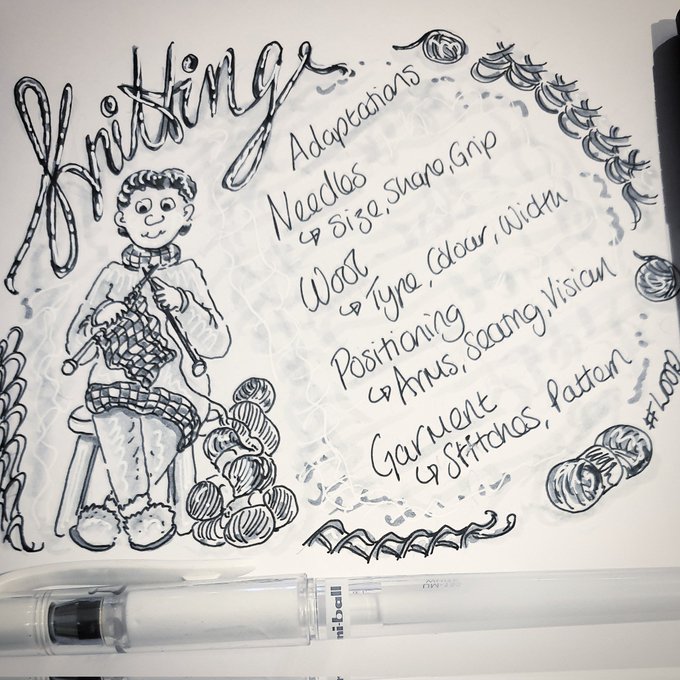 Knitting
Adaptations
Needles
↳ Size, Shape, Grip
Wool
↳ Type, Colour, Width
Positioning
↳ Arms, Seating, Vision
Garment
↳ Stitches, Pattern
#LOOP
ni-ball